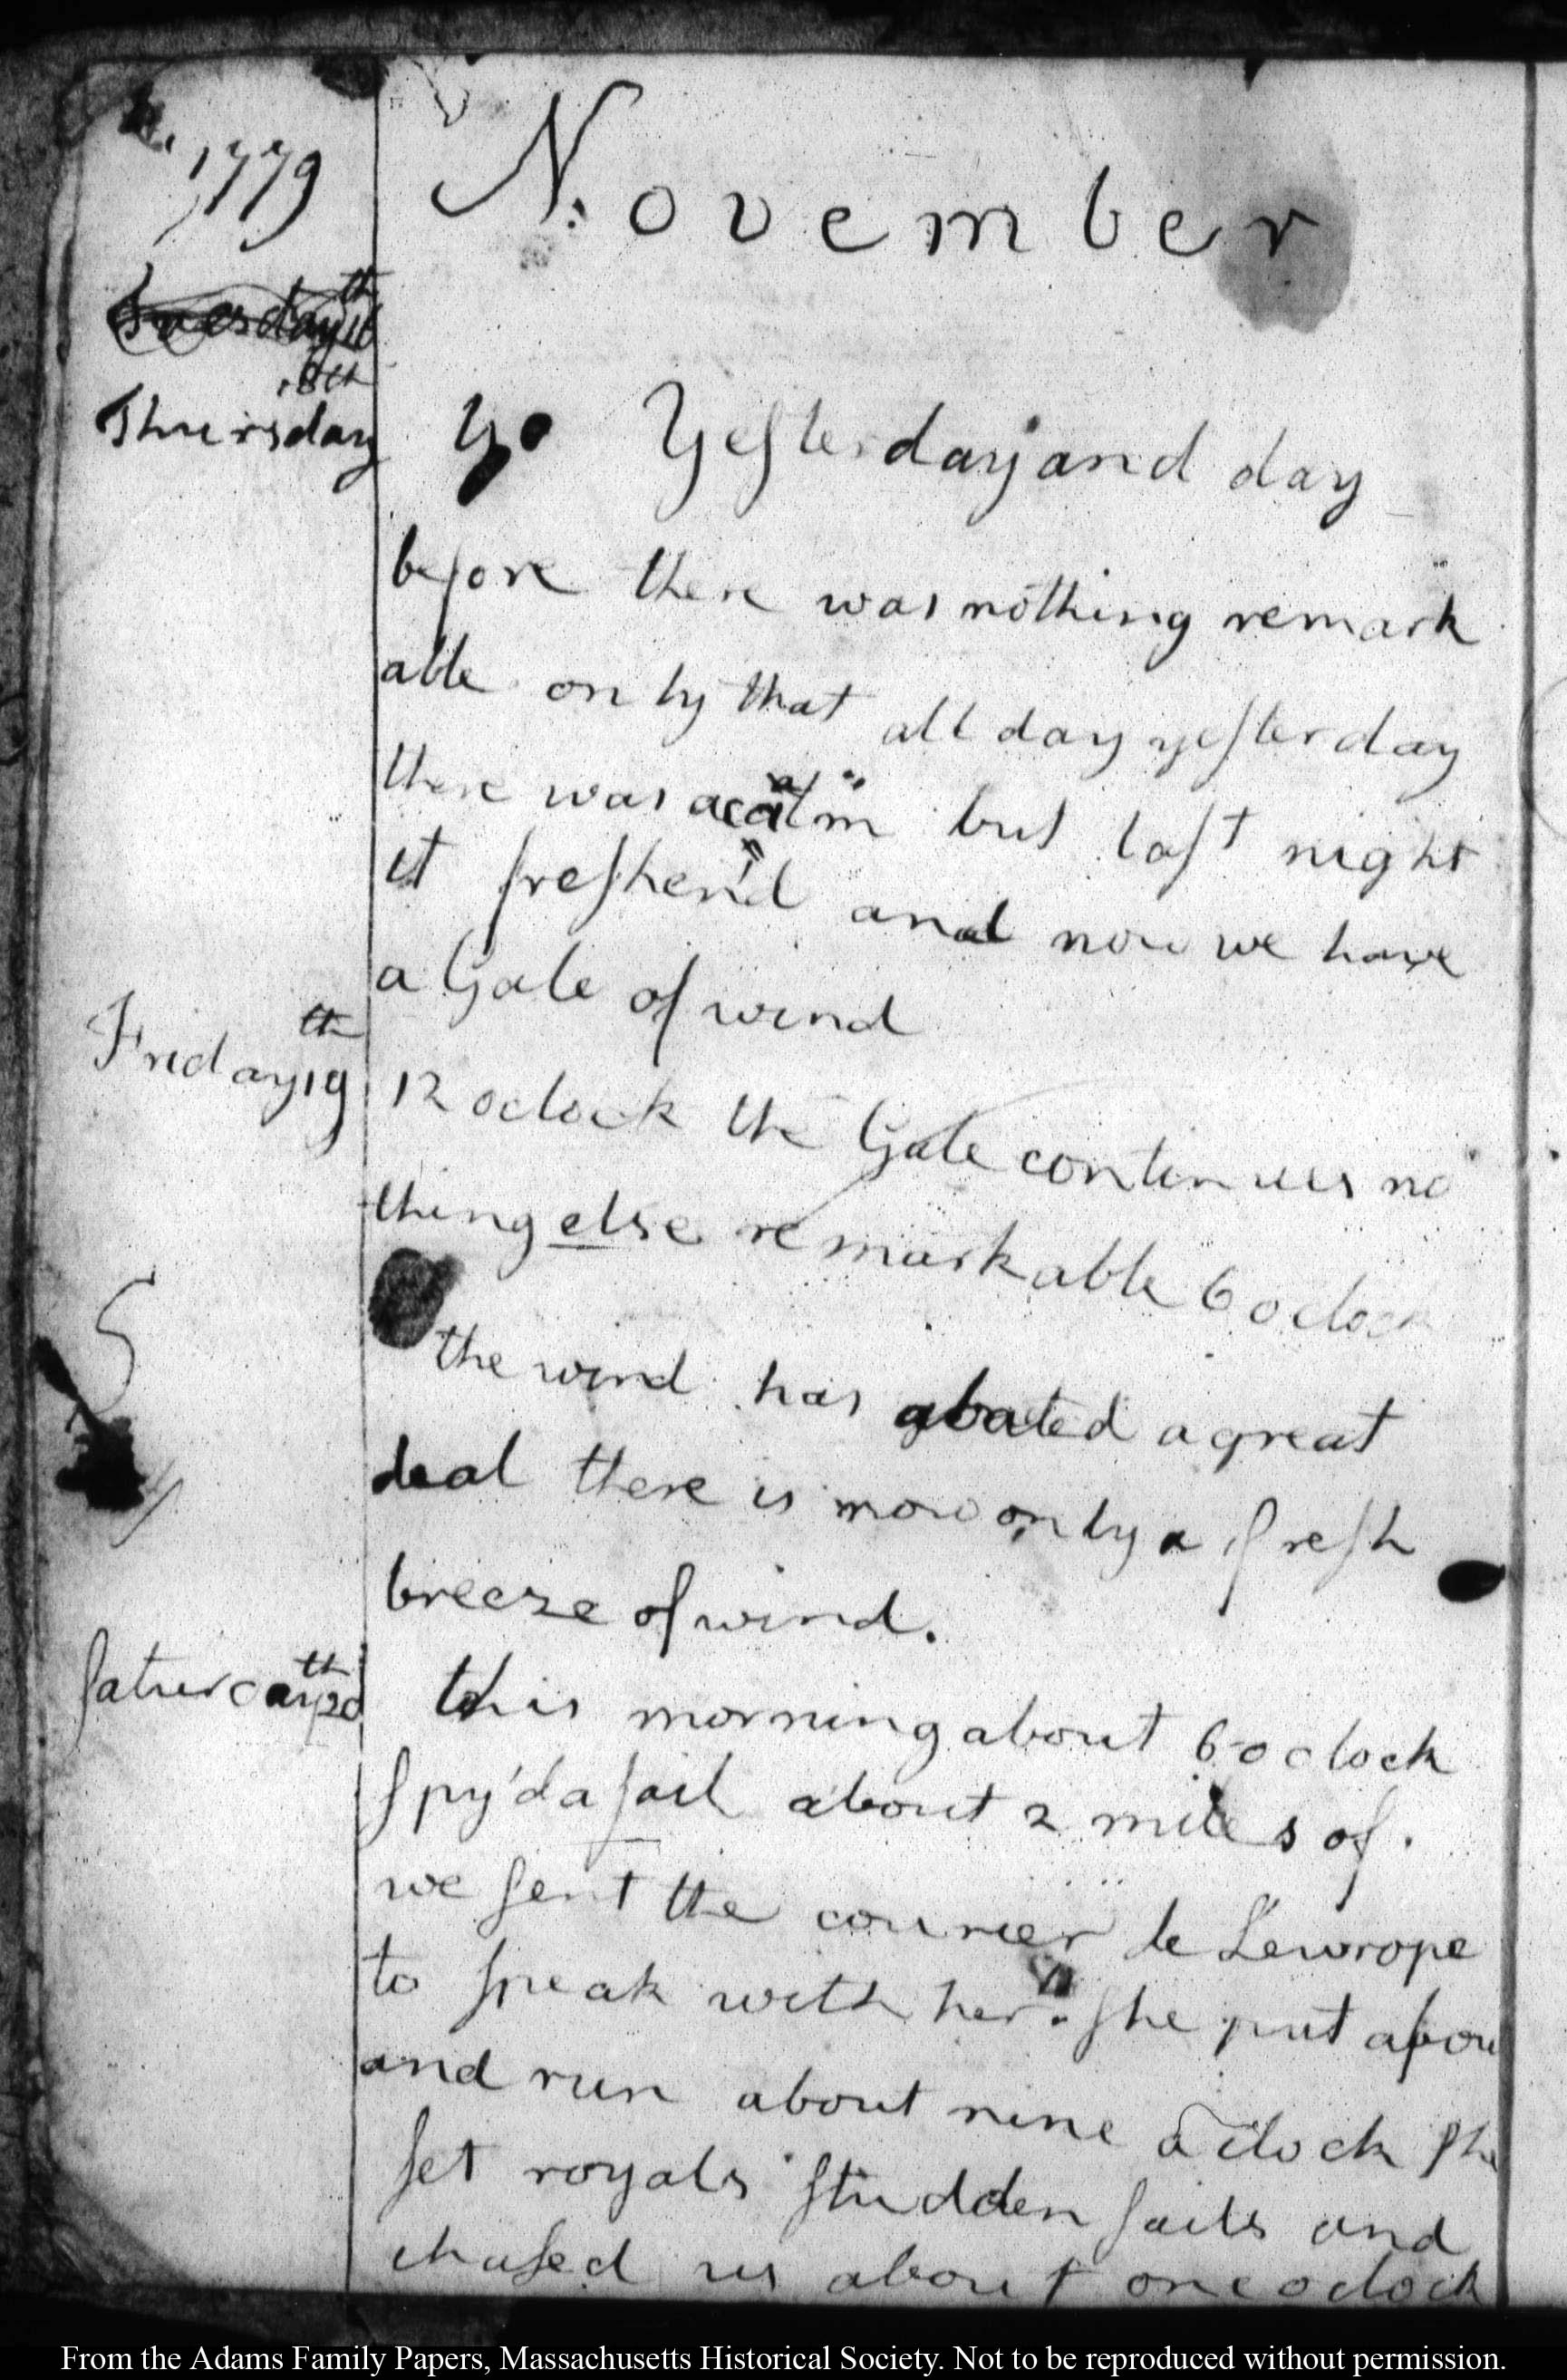 1779
November
Tuesday 16th
Thursday 18th
Yesterday and day
before there was nothing remark
able only that all day yesterday
there was a calm but last night
it freshen'd and now we have
a Gale of wind
Friday 19th
12 oclock the Gale continues no
thing else remarkable 6 oclock
the wind has abated a great
deal there is now only a fresh
breeze of wind.
Saturday 20th
this morning about 6 oclock
spy'd a sail about 2 miles of.
we sent the courier de L'europe
to speak with her. she put abou
and run about nine o'clock she
set royals studden sails and
chased us about one oclock
From the Adams Family Papers, Massachusetts Historical Society. Not to be reproduced without permission.